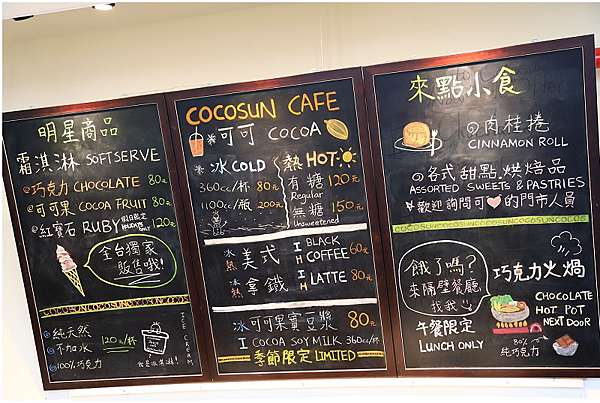 明星商品
霜淇淋 SOFTSERVE
巧克力 CHOCOLATE 80元
可可果 COCOA FRUIT 80元
紅寶石 RUBY 假日限定 HOLIDAYS ONLY 120元
全台獨家
販售哦!
COCOSUNCOCOSUNCOCOSUN
純天然
不加冰
100%巧克力
120元/杯
ICE CREAM
COCOSUN CAFE
可可 COCOA
冰 COLD
360cc/杯 80元
1100cc/瓶 200元
熱 HOT
有糖 120元
Regular
無糖 150元
Unsweetened
冰 I BLACK
熱 美式 H COFFEE 60元
冰 I
熱 拿鐵 H LATTE 80元
冰可可果實豆漿 80元
I COCOA SOY MILK 360cc/杯
季節限定 LIMITED
來點小食
肉桂捲
CINNAMON ROLL
各式甜點.烘焙品
ASSORTED SWEETS & PASTRIES
歡迎詢問可❤的門市人員
COCOSUNCOCOSUNCOCOSUNCOCOSUNCOCOS
餓了嗎?
來隔壁餐廳
找我
午餐限定
LUNCH ONLY
巧克力火鍋
CHOCOLATE
HOT POT
NEXT DOOR
80%
純巧克力